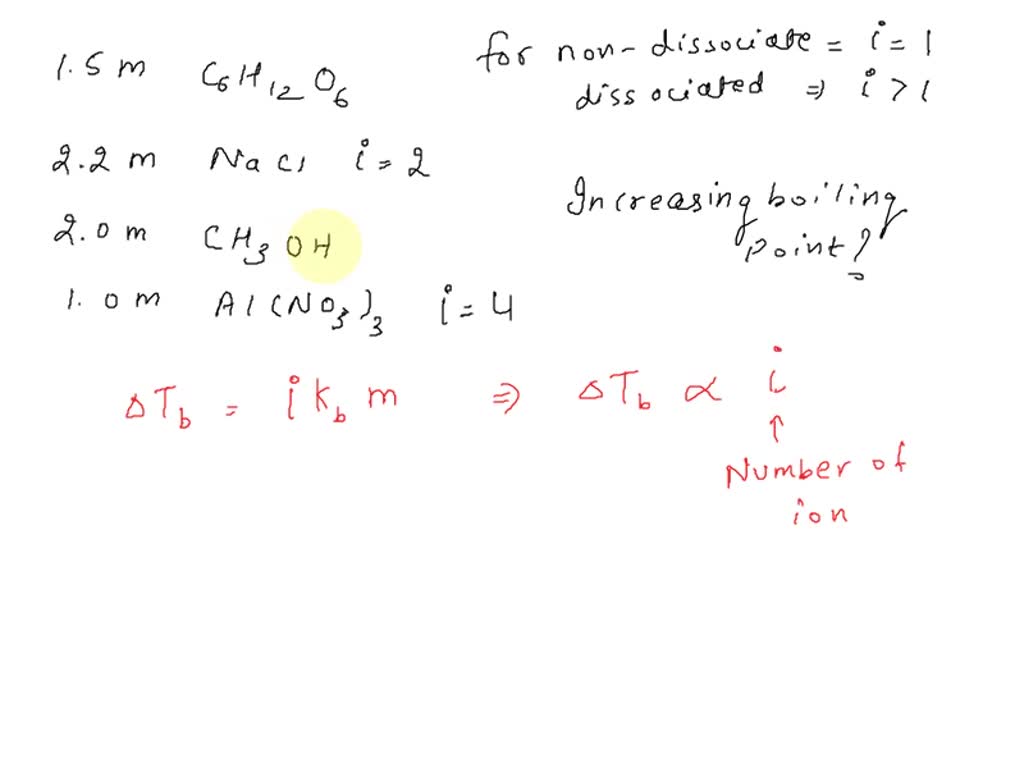 1.5 m C6H12O6
for non-dissociate = i = 1
dissociated ⇒ i > 1
2.2 m NaCl i = 2
Increasing boiling
point?
2.0 m CH3OH
1.0 m Al(NO3)3 i = 4
ΔTb = i kb m ⇒ ΔTb ∝ i
↑
Number of
ion